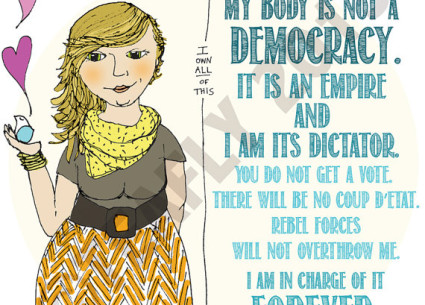 I
OWN
ALL
OF
THIS
MY BODY IS NOT A
DEMOCRACY.
IT IS AN EMPIRE
AND
I AM ITS DICTATOR.
YOU DO NOT GET A VOTE.
THERE WILL BE NO COUP D'ETAT.
REBEL FORCES
WILL NOT OVERTHROW ME.
I AM IN CHARGE OF IT
FOREVER